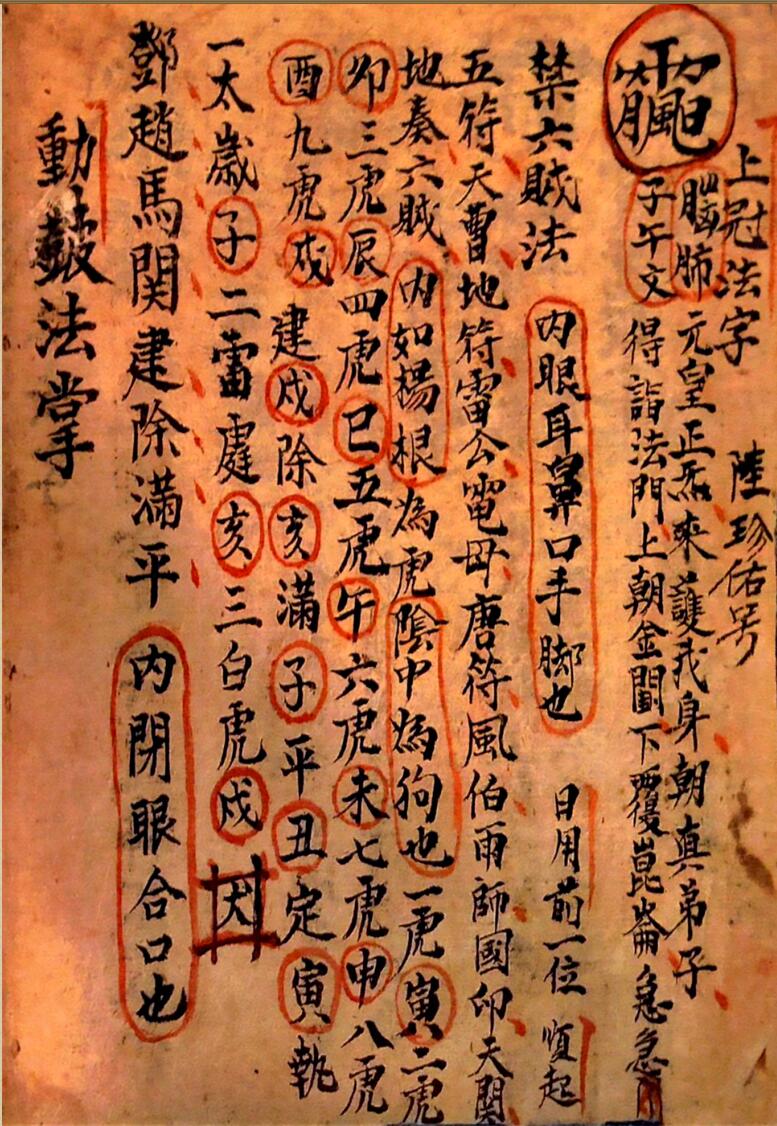 上冠法字 陸珍佑号
腦肺 元皇正炁來護我身朝真弟子
子午文 得詣法門上朝金闕下覆崑崙急急
禁六賊法 内眼耳鼻口手脚也 日用前一位順起
五符天曹地符雷公電母唐符風伯雨師國印天関
地奏六賊内如楊根為虎陰中為狗也一虎寅二虎
卯三虎辰四虎巳五虎午六虎未七虎申八虎
酉九虎戍建戍除亥滿子平丑定寅執
一太歲子二雷霆亥三白虎戍犬
鄧趙馬関建除滿平 内閉眼合口也
動鼓法掌